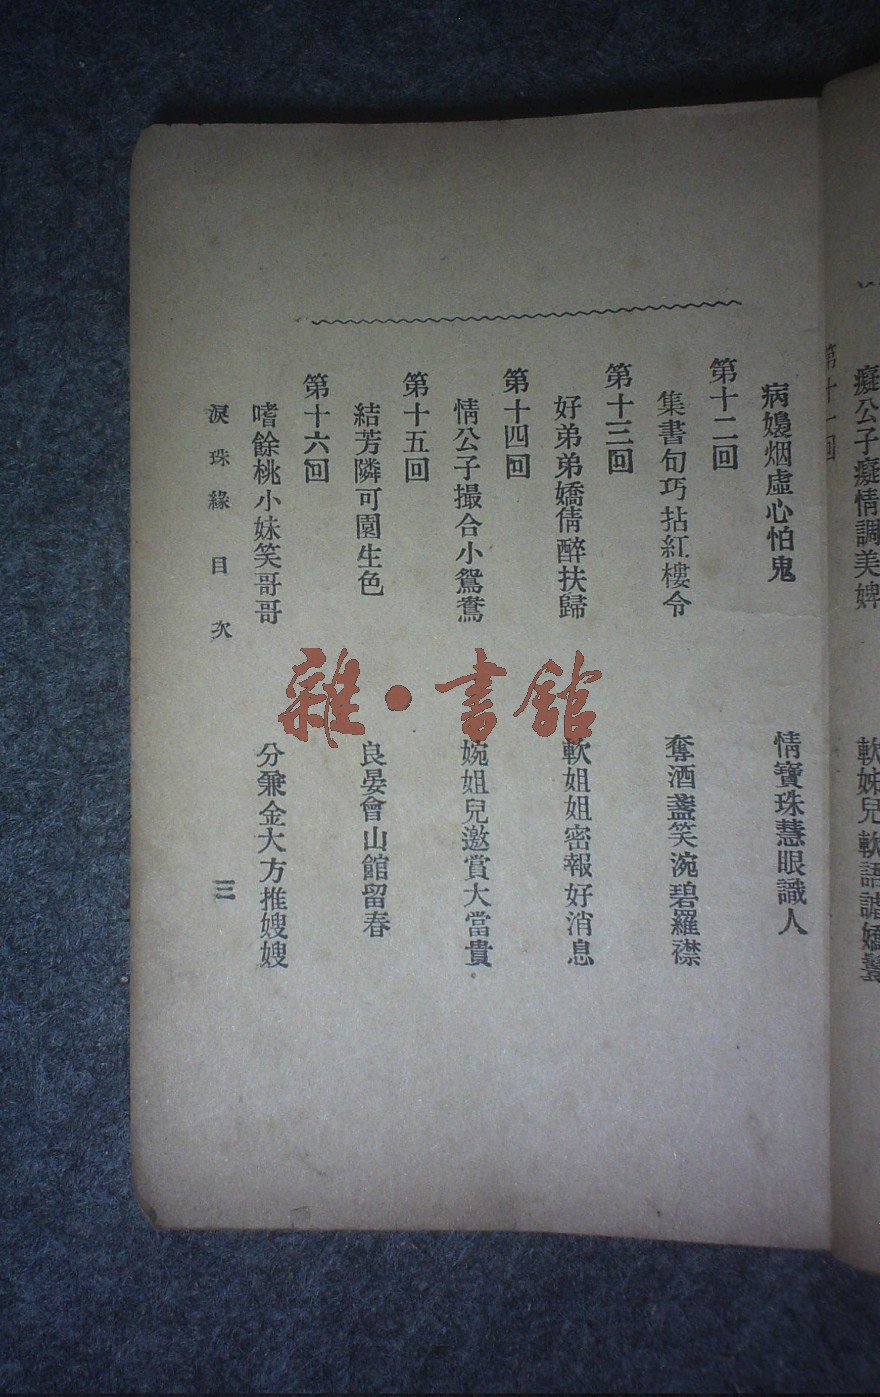 癡公子癡情調美婢　軟姊兒軟語謔嬌鬟
第十一回
病嬝烟虛心怕鬼　情寶珠慧眼識人
第十二回
集書句巧拈紅樓令　奪酒盞笑涴碧羅襟
第十三回
好弟弟嬌倩醉扶歸　軟姐姐密報好消息
第十四回
情公子撮合小鴛鴦　婉姐兒邀賞大富貴
第十五回
結芳隣可園生色　良晏會山館留春
第十六回
嗜餘桃小妹笑哥哥　分兼金大方推嫂嫂
淚珠緣　目次　三
雜·書館